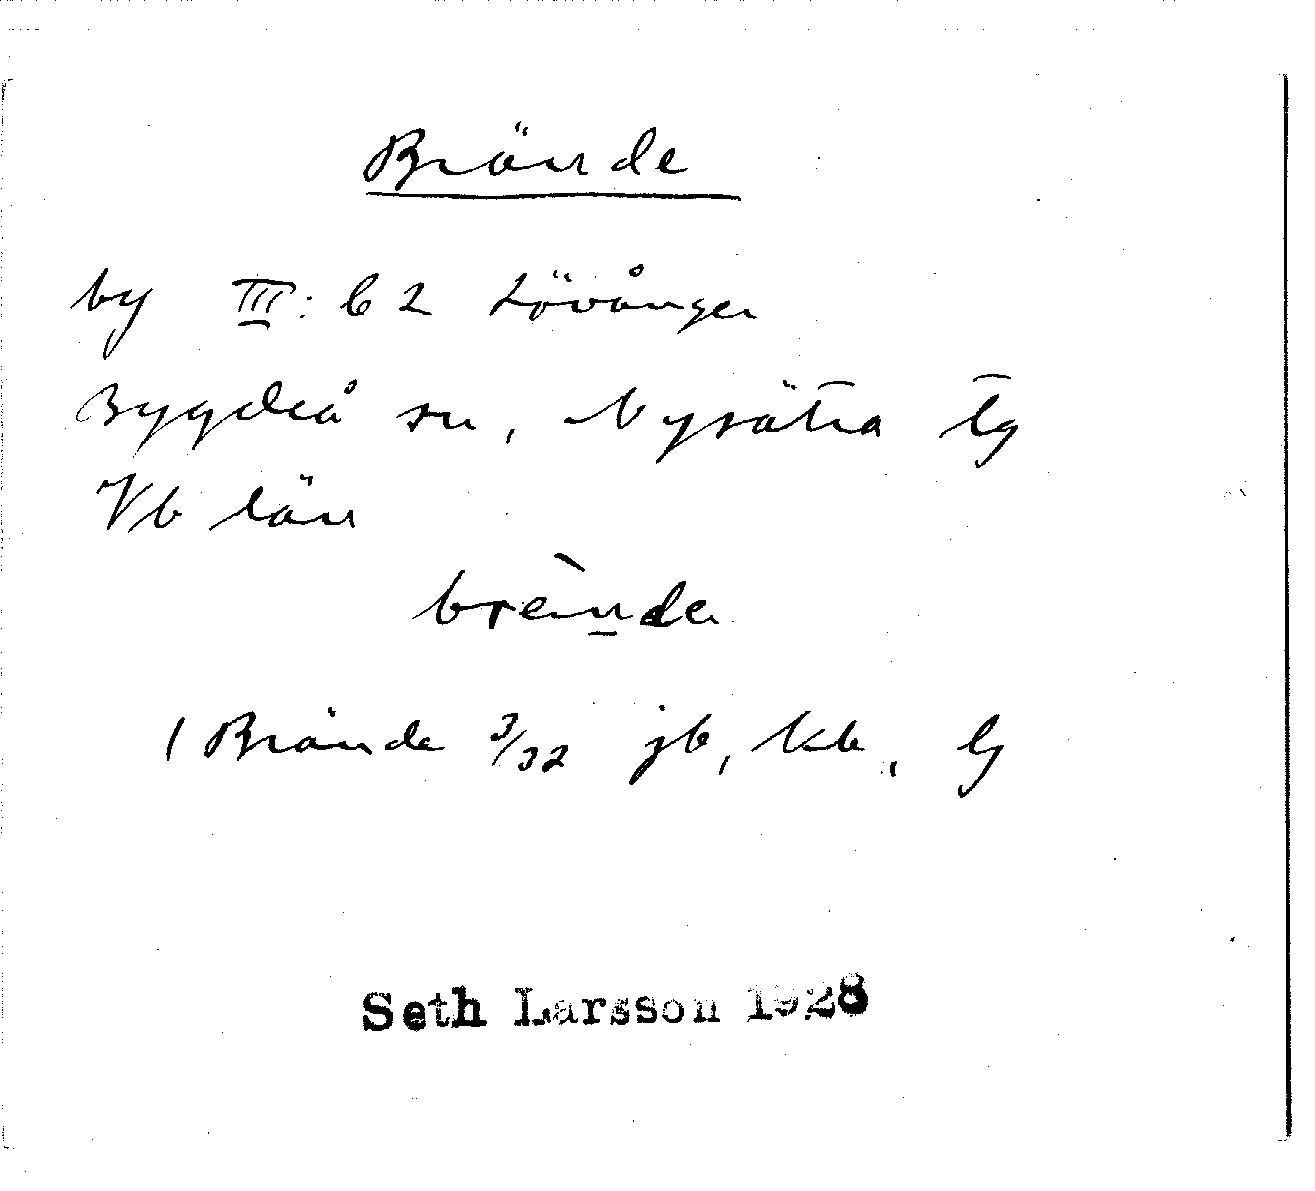 Brände
by III: C2 Lövånger
Bygdeå sn, Nysätra tg
Vb län
brènde
1 Brände 3/32 jb, kb, lg
Seth Larsson 1928